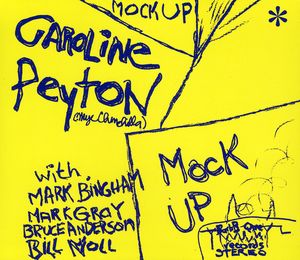 MOCKUP
*
CAROLINE
PEYTON
with
MARK BINGHAM
MARK GRAY
BRUCE ANDERSON
BILL NOLL
MOCK
UP
records
STEREO